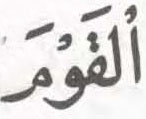 اُلْقَوْمَ